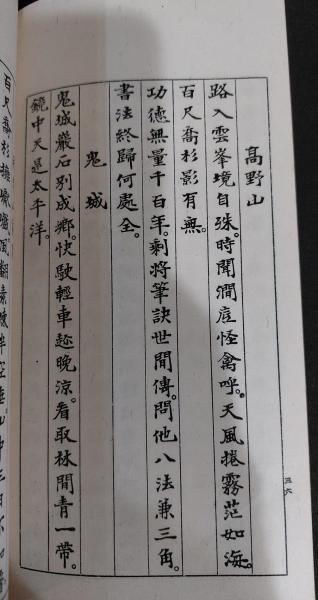 高野山
路入雲峯境自殊。時聞澗底怪禽呼。天風捲霧茫如海。
百尺喬杉影有無。
功德無量千百年。剩將筆訣世間傳。問他八法兼三角。
書法終歸何處全。
鬼城
鬼城巖石別成鄉。快駛輕車趂晚涼。看取林間青一帶。
鏡中天是太平洋。
三六